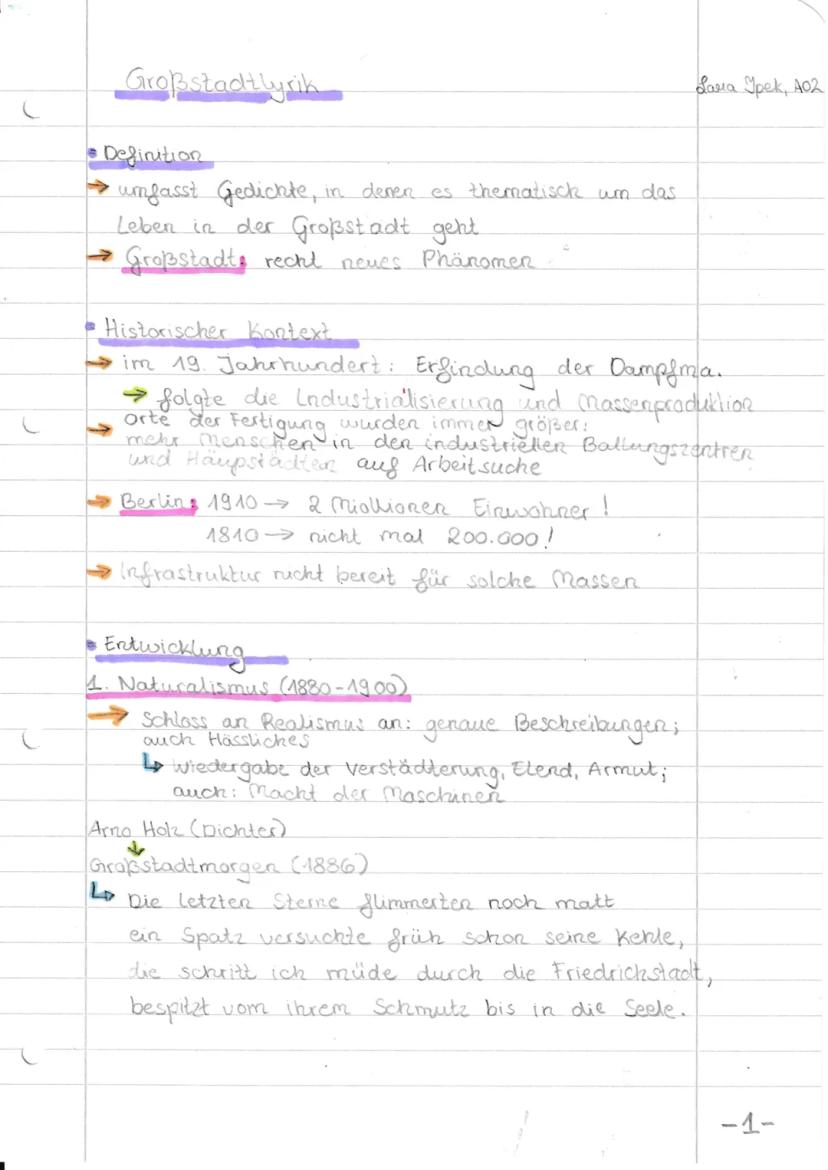 Großstadtlyrik
Lara Ipek, A02
• Definition
→ umfasst Gedichte, in denen es thematisch um das
Leben in der Großstadt geht
→ Großstadt: recht neues Phänomen
• Historischer Kontext
→ im 19. Jahrhundert: Erfindung der Dampfma.
→ folgte die Industrialisierung und Massenproduktion
→ Orte der Fertigung wurden immer größer:
mehr Menschen in den industriellen Ballungszentren
und Haupstädten auf Arbeitsuche
→ Berlin: 1910 → 2 Miollionen Einwohner!
1810 → nicht mal 200.000!
→ Infrastruktur nicht bereit für solche Massen
• Entwicklung
1. Naturalismus (1880-1900)
→ Schloss an Realismus an: genaue Beschreibungen;
auch Hässliches
↳ Wiedergabe der Verstädterung, Elend, Armut;
auch: Macht der Maschinen
Arno Holz (Dichter)
↓
Großstadtmorgen (1886)
↳ Die letzten Sterne flimmerten noch matt
ein Spatz versuchte früh schon seine Kehle,
die schritt ich müde durch die Friedrichstadt,
bespitzt vom ihrem Schmutz bis in die Seele.
-1-